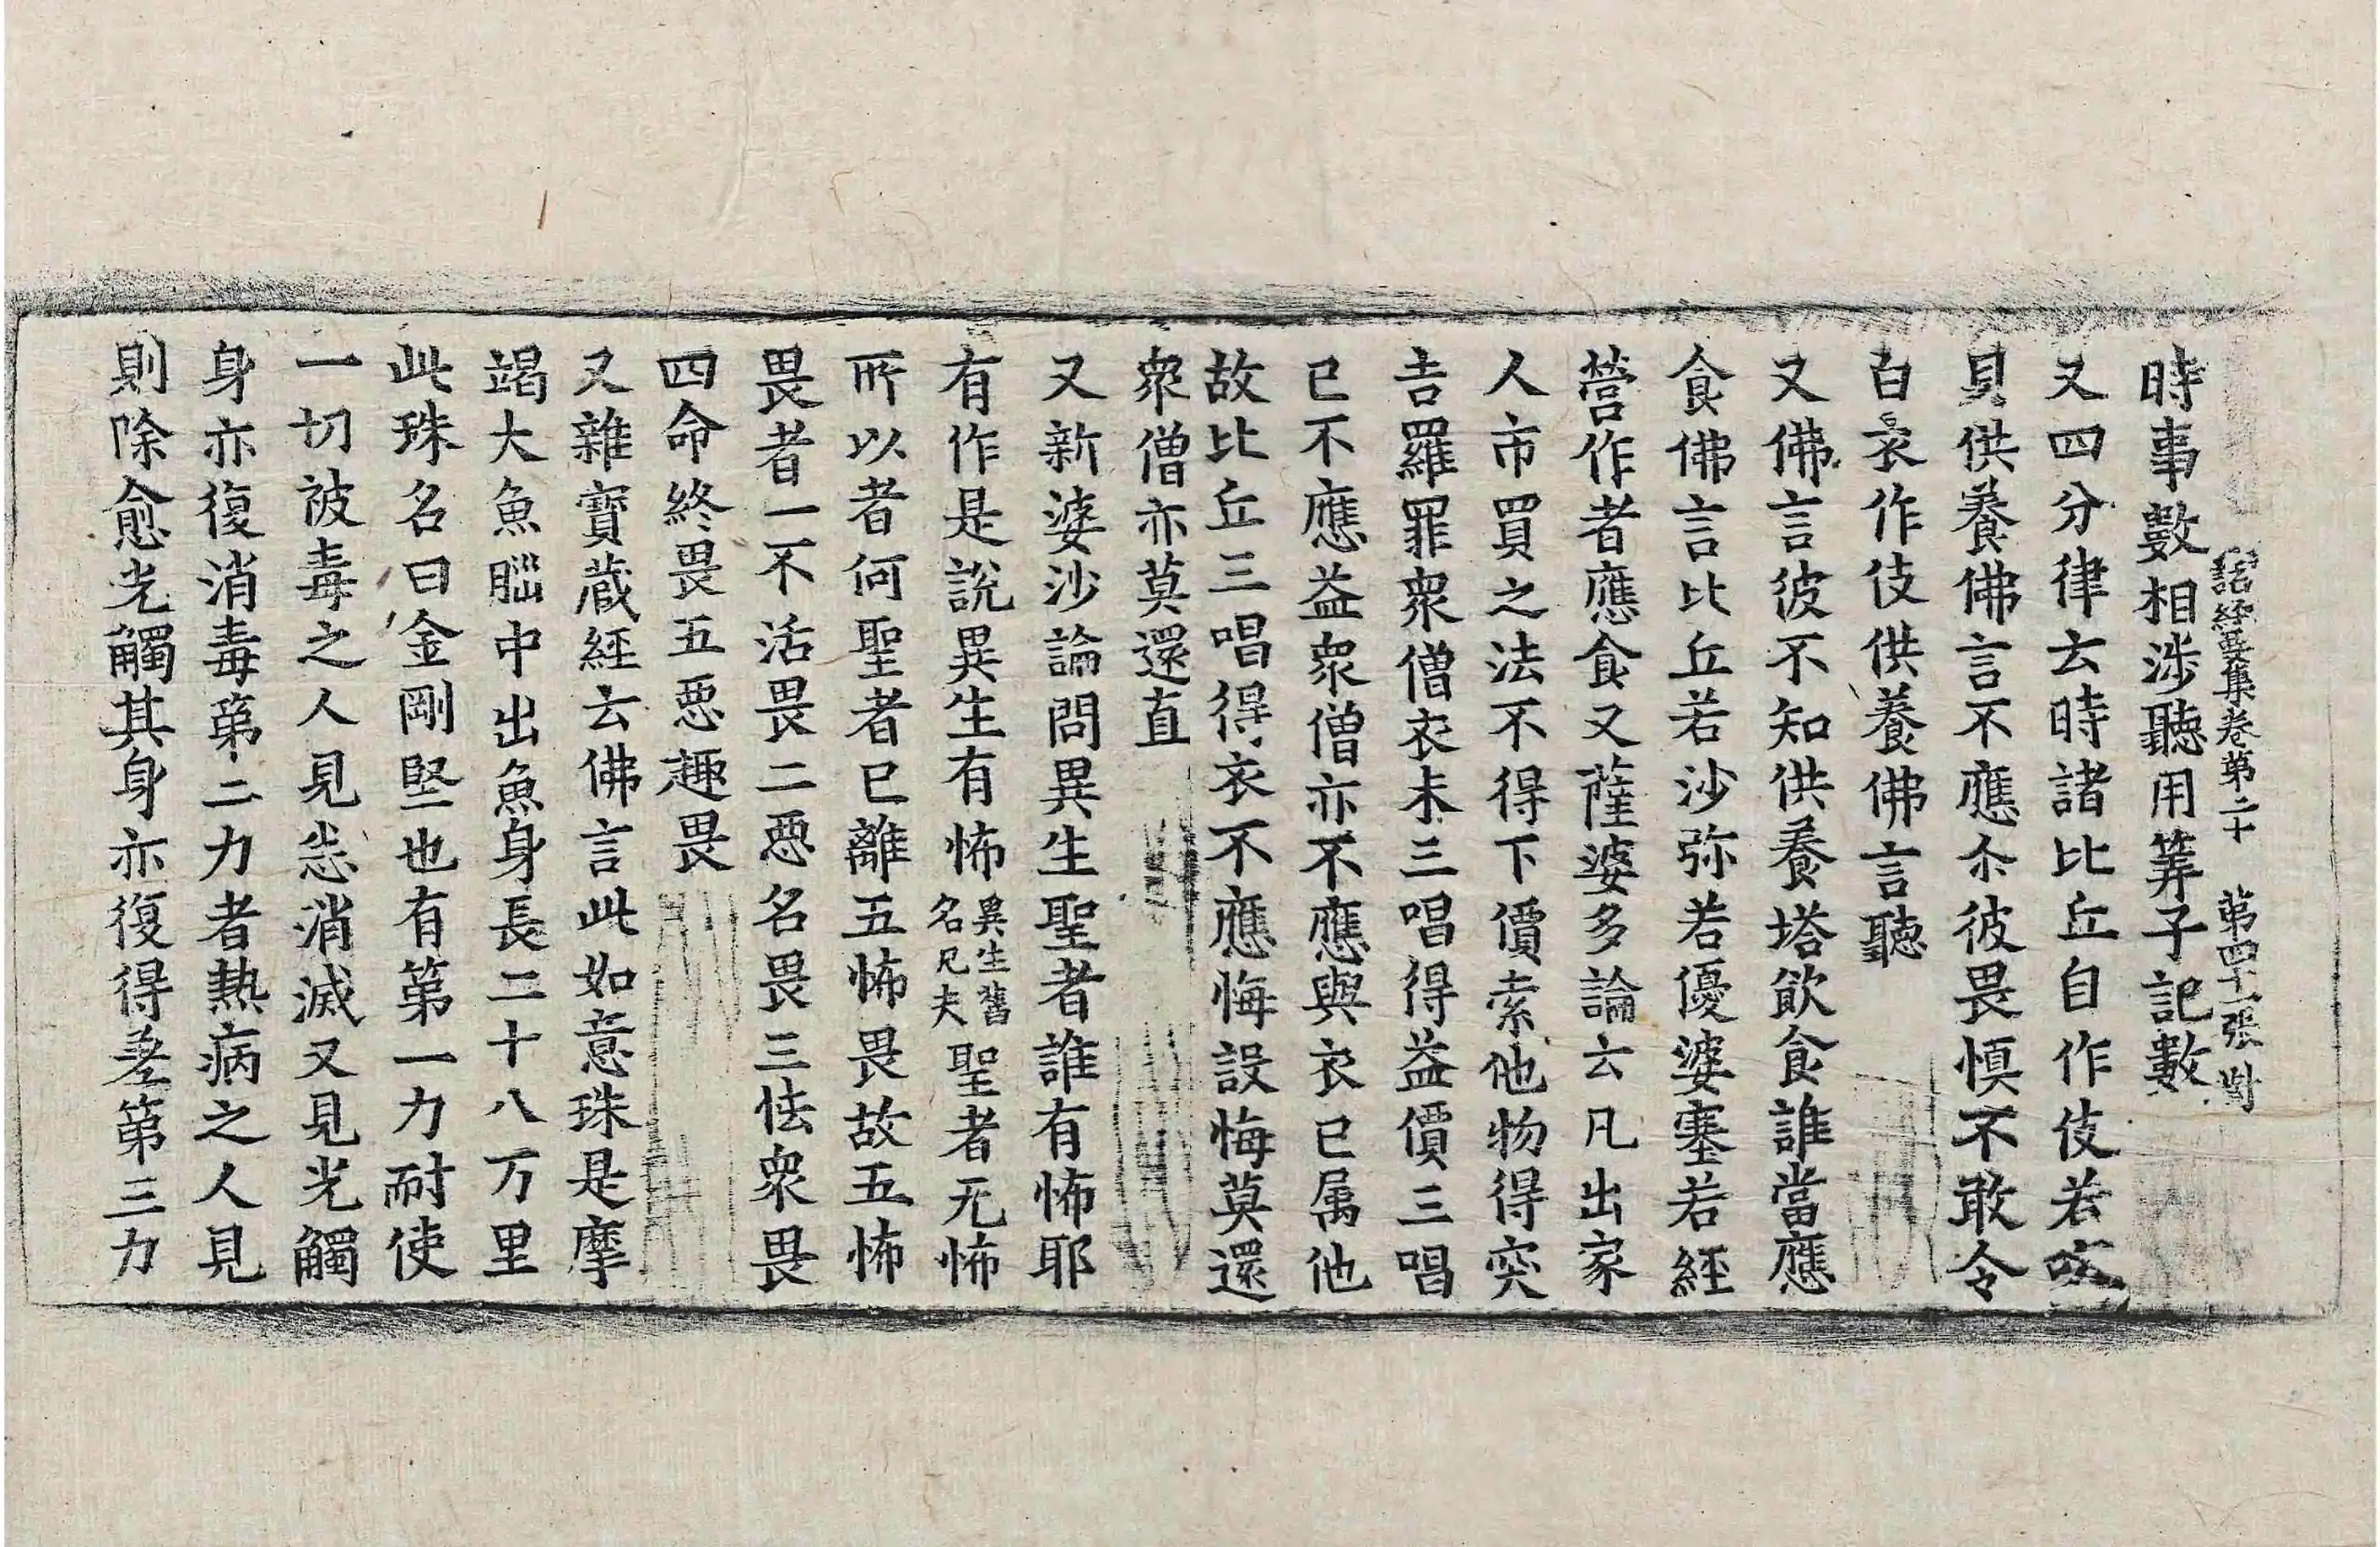 諸經要集卷第二十 第四十一張 對
時事數相涉聽用筭子記數
又四分律云時諸比丘自作伎若吹
貝供養佛言不應尒彼畏慎不敢令
白衣作伎供養佛言聽
又佛言彼不知供養塔飲食誰當應
食佛言比丘若沙弥若優婆塞若經
營作者應食又薩婆多論云凡出家
人市買之法不得下價索他物得突
吉羅罪衆僧衣未三唱得益價三唱
已不應益衆僧亦不應與衣已属他
故比丘三唱得衣不應悔設悔莫還
衆僧亦莫還直
又新婆沙論問異生聖者誰有怖耶
有作是說異生有怖異生舊名凡夫聖者无怖
所以者何聖者已離五怖畏故五怖
畏者一不活畏二惡名畏三怯衆畏
四命終畏五惡趣畏
又雜寶蔵經云佛言此如意珠是摩
竭大魚𦛁中出魚身長二十八万里
此珠名曰金剛堅也有第一力耐使
一切被毒之人見悉消滅又見光觸
身亦復消毒第二力者熱病之人見
則除愈光觸其身亦復得差第三力